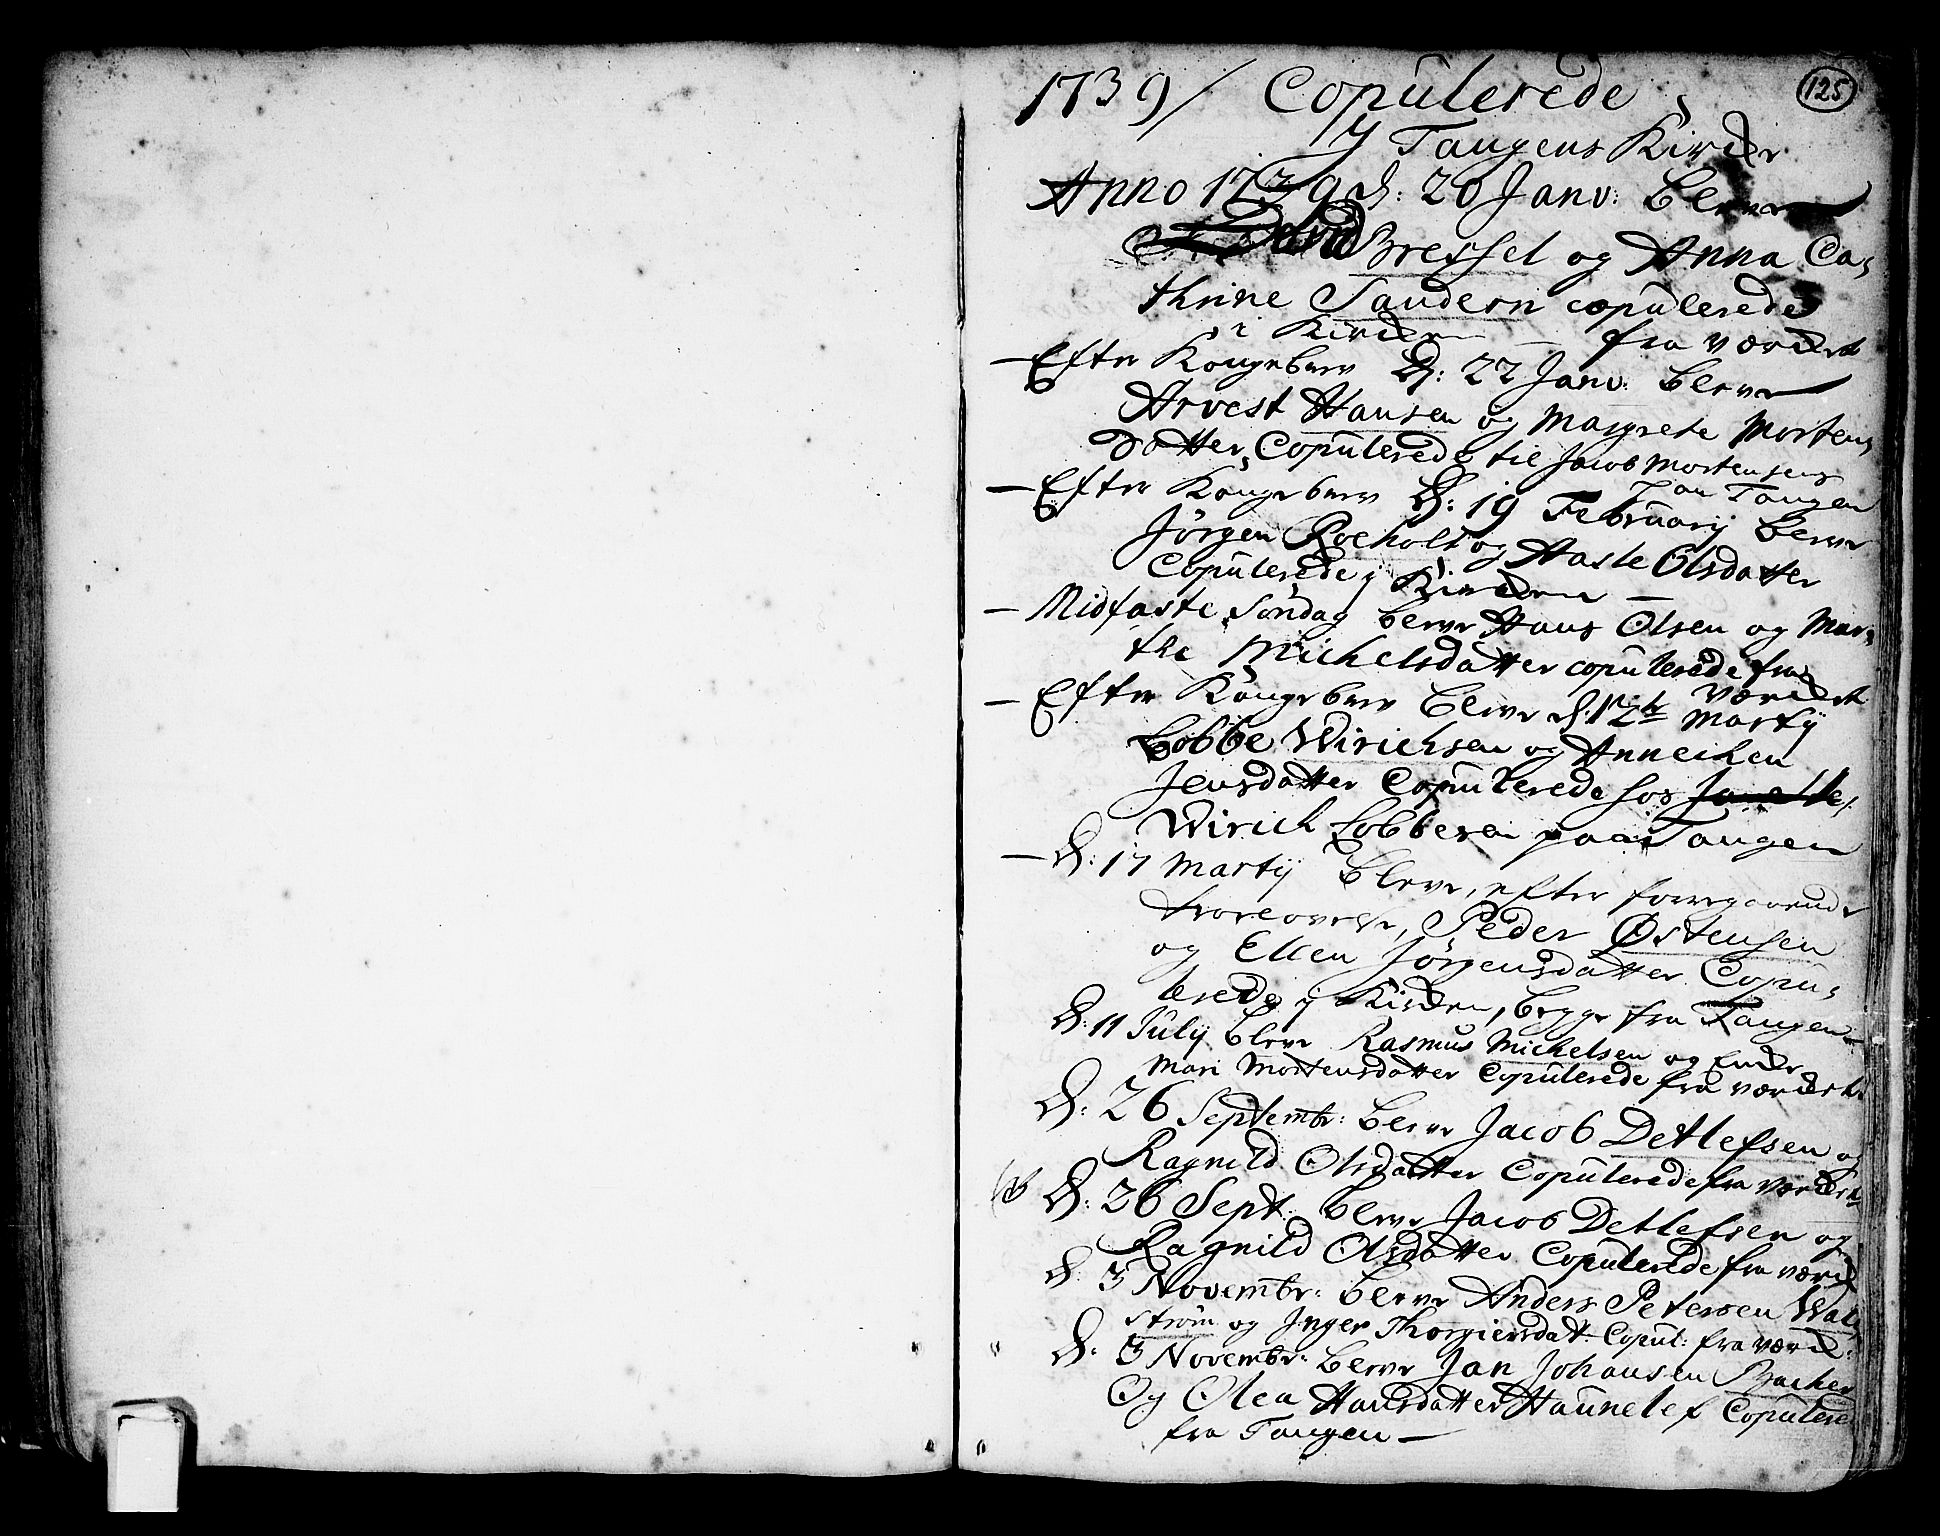 125
1739/ Copulerede
y Tangens Kirche
Anno 1739 d: 20 Janv: bleve
David Bressel og Anna Ca-
thrine Saudern copulerede
i Kirchen — fra værdet
— Efter Kongebrev d: 22 Janv: bleve
Arvest Hansen og Margrete Mortens
Datter, Copulerede til Jacob Mortensens
paa Tangen
— Efter Kongebrev d: 19 Februarij bleve
Jørgen Roeholt og Aaste Olsdatter
Copulerede j Kirchen —
— Midfaste Søndag bleve Hans Olsen og Mar-
the Michelsdatter copulerede fra
værdet
— Efter Kongebrev bleve d: 12te Martij
Lobbe Wirichsen og Annechen
Jensdatter Copulerede hos
Wirich Lobbesen paa Tangen
— d: 17 Martij bleve, efter foregaaende
troelovelse, Peder Østensen
og Ellen Jørgensdatter Copu-
lerede j Kirchen, begge fra Tangen
d: 11 Julij bleve Rasmus Michelsen og
Mari Mortensdatter Copulerede fra værdet
d: 26 Septembr: bleve Jacob Detlefsen og
Ragnild Olsdatter Copulerede fra værdet
d: 26 Sept: bleve Jacob Detlefsen og
Ragnild Olsdatter Copulerede fra værd
d: 3 Novembr: bleve Anders Petersen Wal-
strøm og Inger Thorgiersdatt: Copul: fra værd:
d: 3 Novembr: bleve Jan Johansen Backer
Og Olea Hansdatter Haunelef Copulere
fra Tangen —